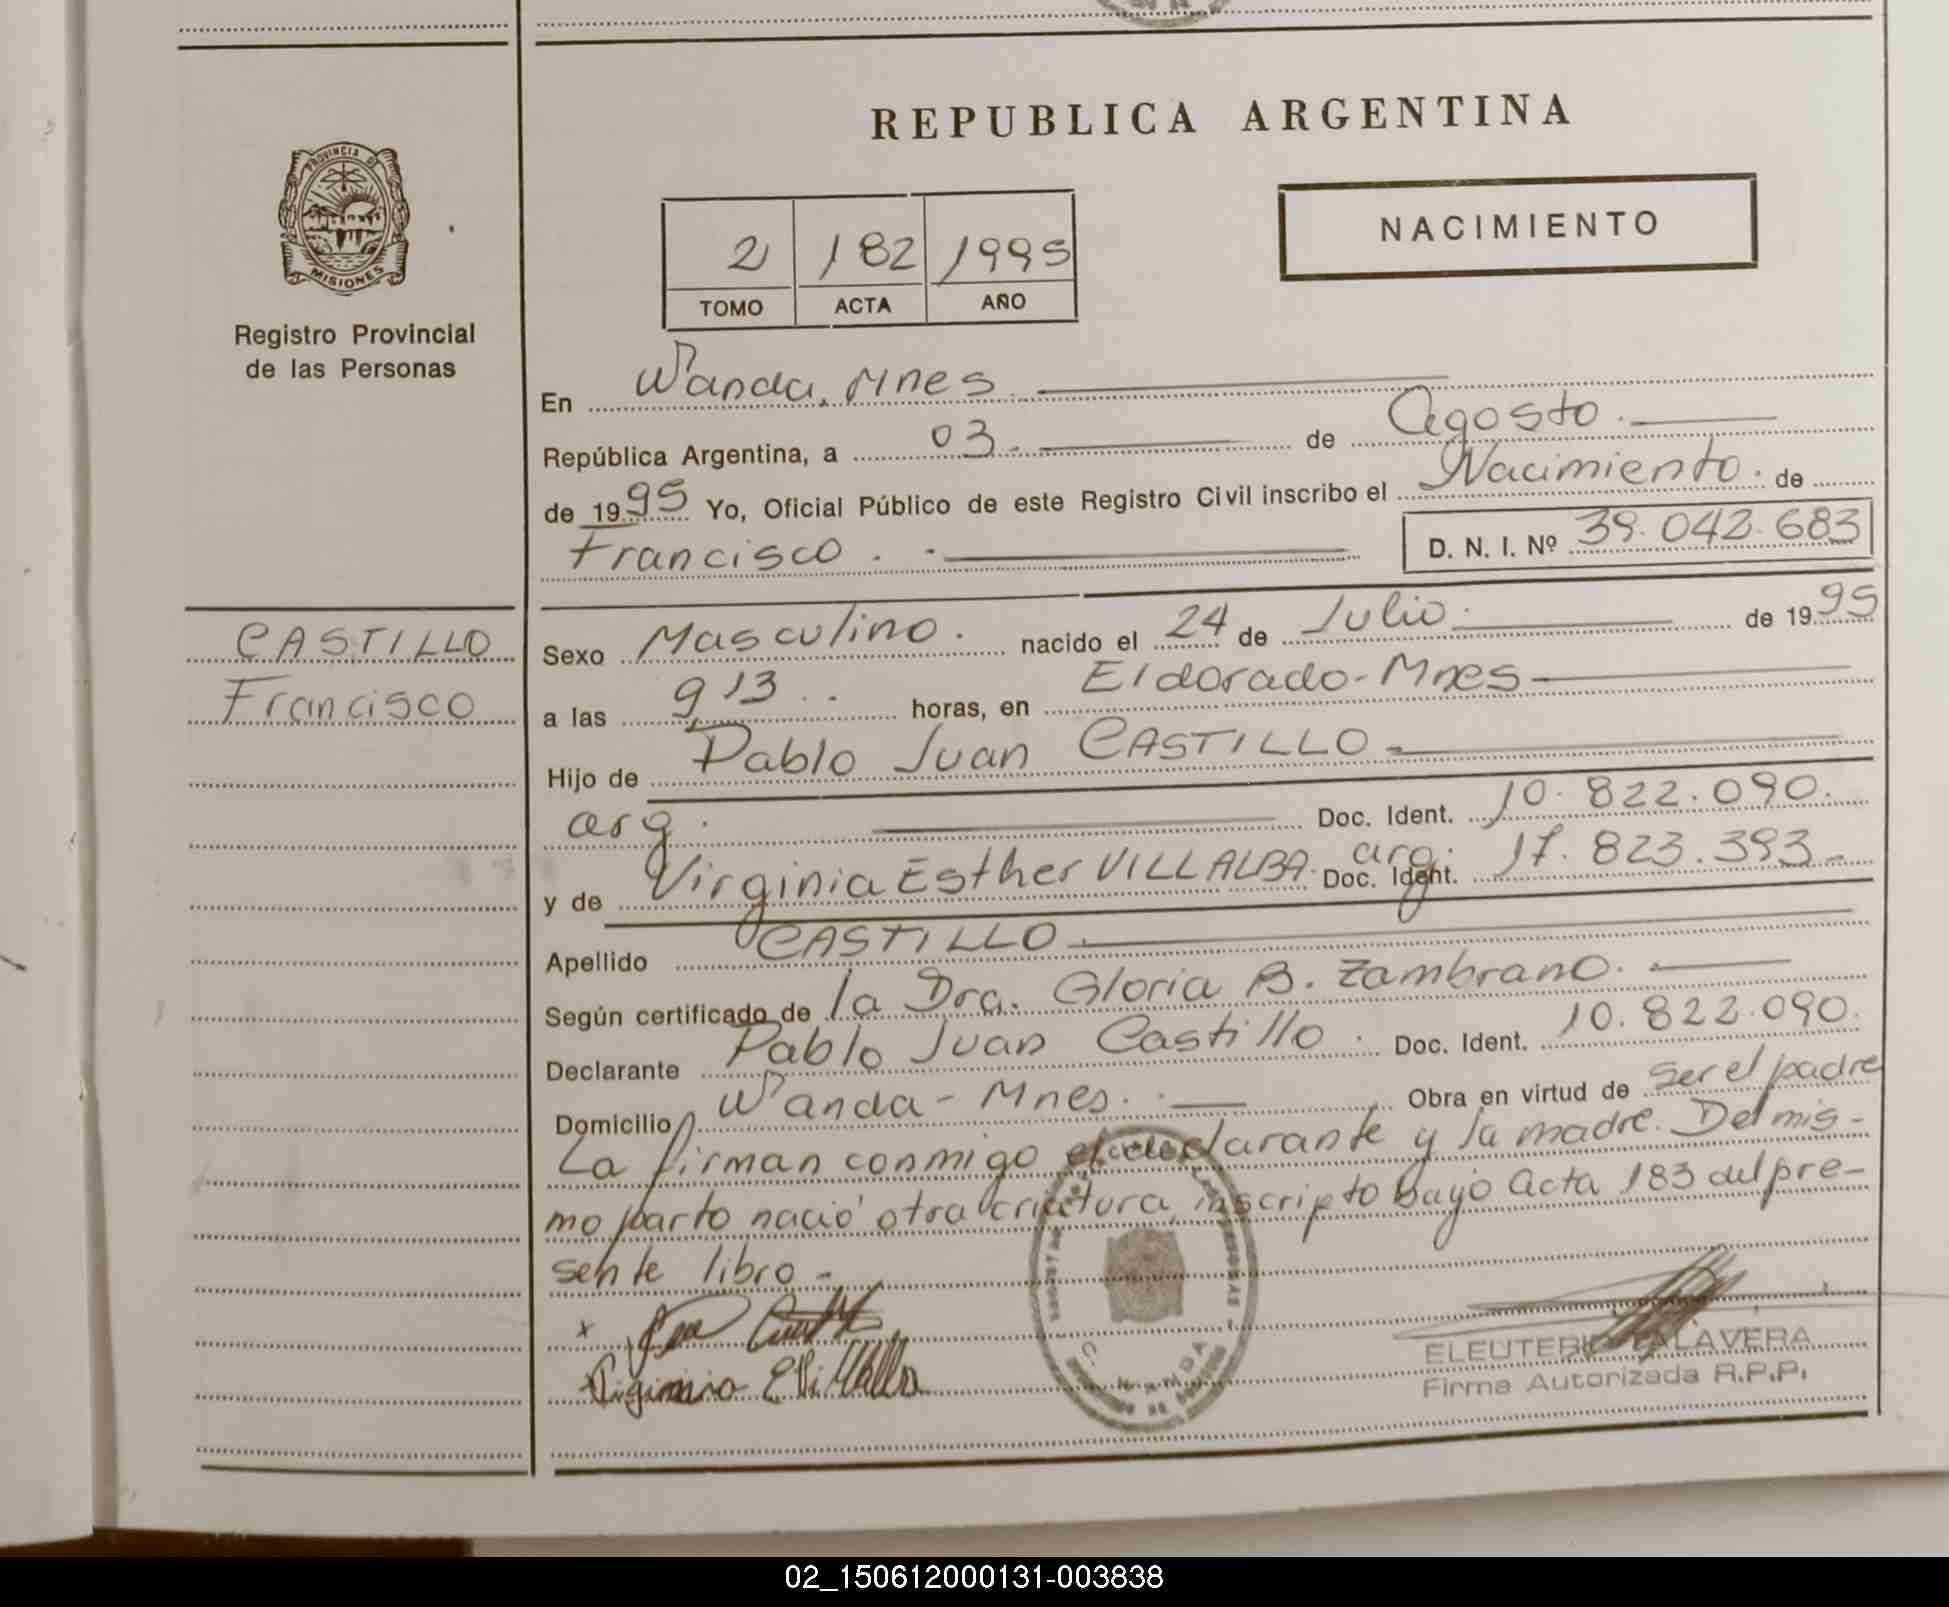 REPUBLICA ARGENTINA
PROVINCIA DE
MISIONES
Registro Provincial
de las Personas
NACIMIENTO
2 182 1995
TOMO ACTA AÑO
En Wanda, Mnes.
República Argentina, a 03. de Agosto.
de 1995 Yo, Oficial Público de este Registro Civil inscribo el Nacimiento. de
Francisco. D. N. I. Nº 39.042.683
CASTILLO
Francisco
Sexo Masculino. nacido el 24 de Julio. de 1995
a las 9,13.. horas, en Eldorado-Mnes
Hijo de Pablo Juan CASTILLO
arg. Doc. Ident. 10.822.090.
y de Virginia Esther VILLALBA. arg. Doc. Ident. 17.823.393.
Apellido CASTILLO
Según certificado de la Dra. Gloria B. Zambrano.
Declarante Pablo Juan Castillo. Doc. Ident. 10.822.090.
Domicilio Wanda-Mnes. Obra en virtud de ser el padre
La firman conmigo el declarante y la madre. Del mis-
mo parto nació otra criatura, inscripto bajo Acta 183 del pre-
sente libro.-
x
ELEUTERIO TALAVERA
Firma Autorizada R.P.P.
WANDA
02_150612000131-003838